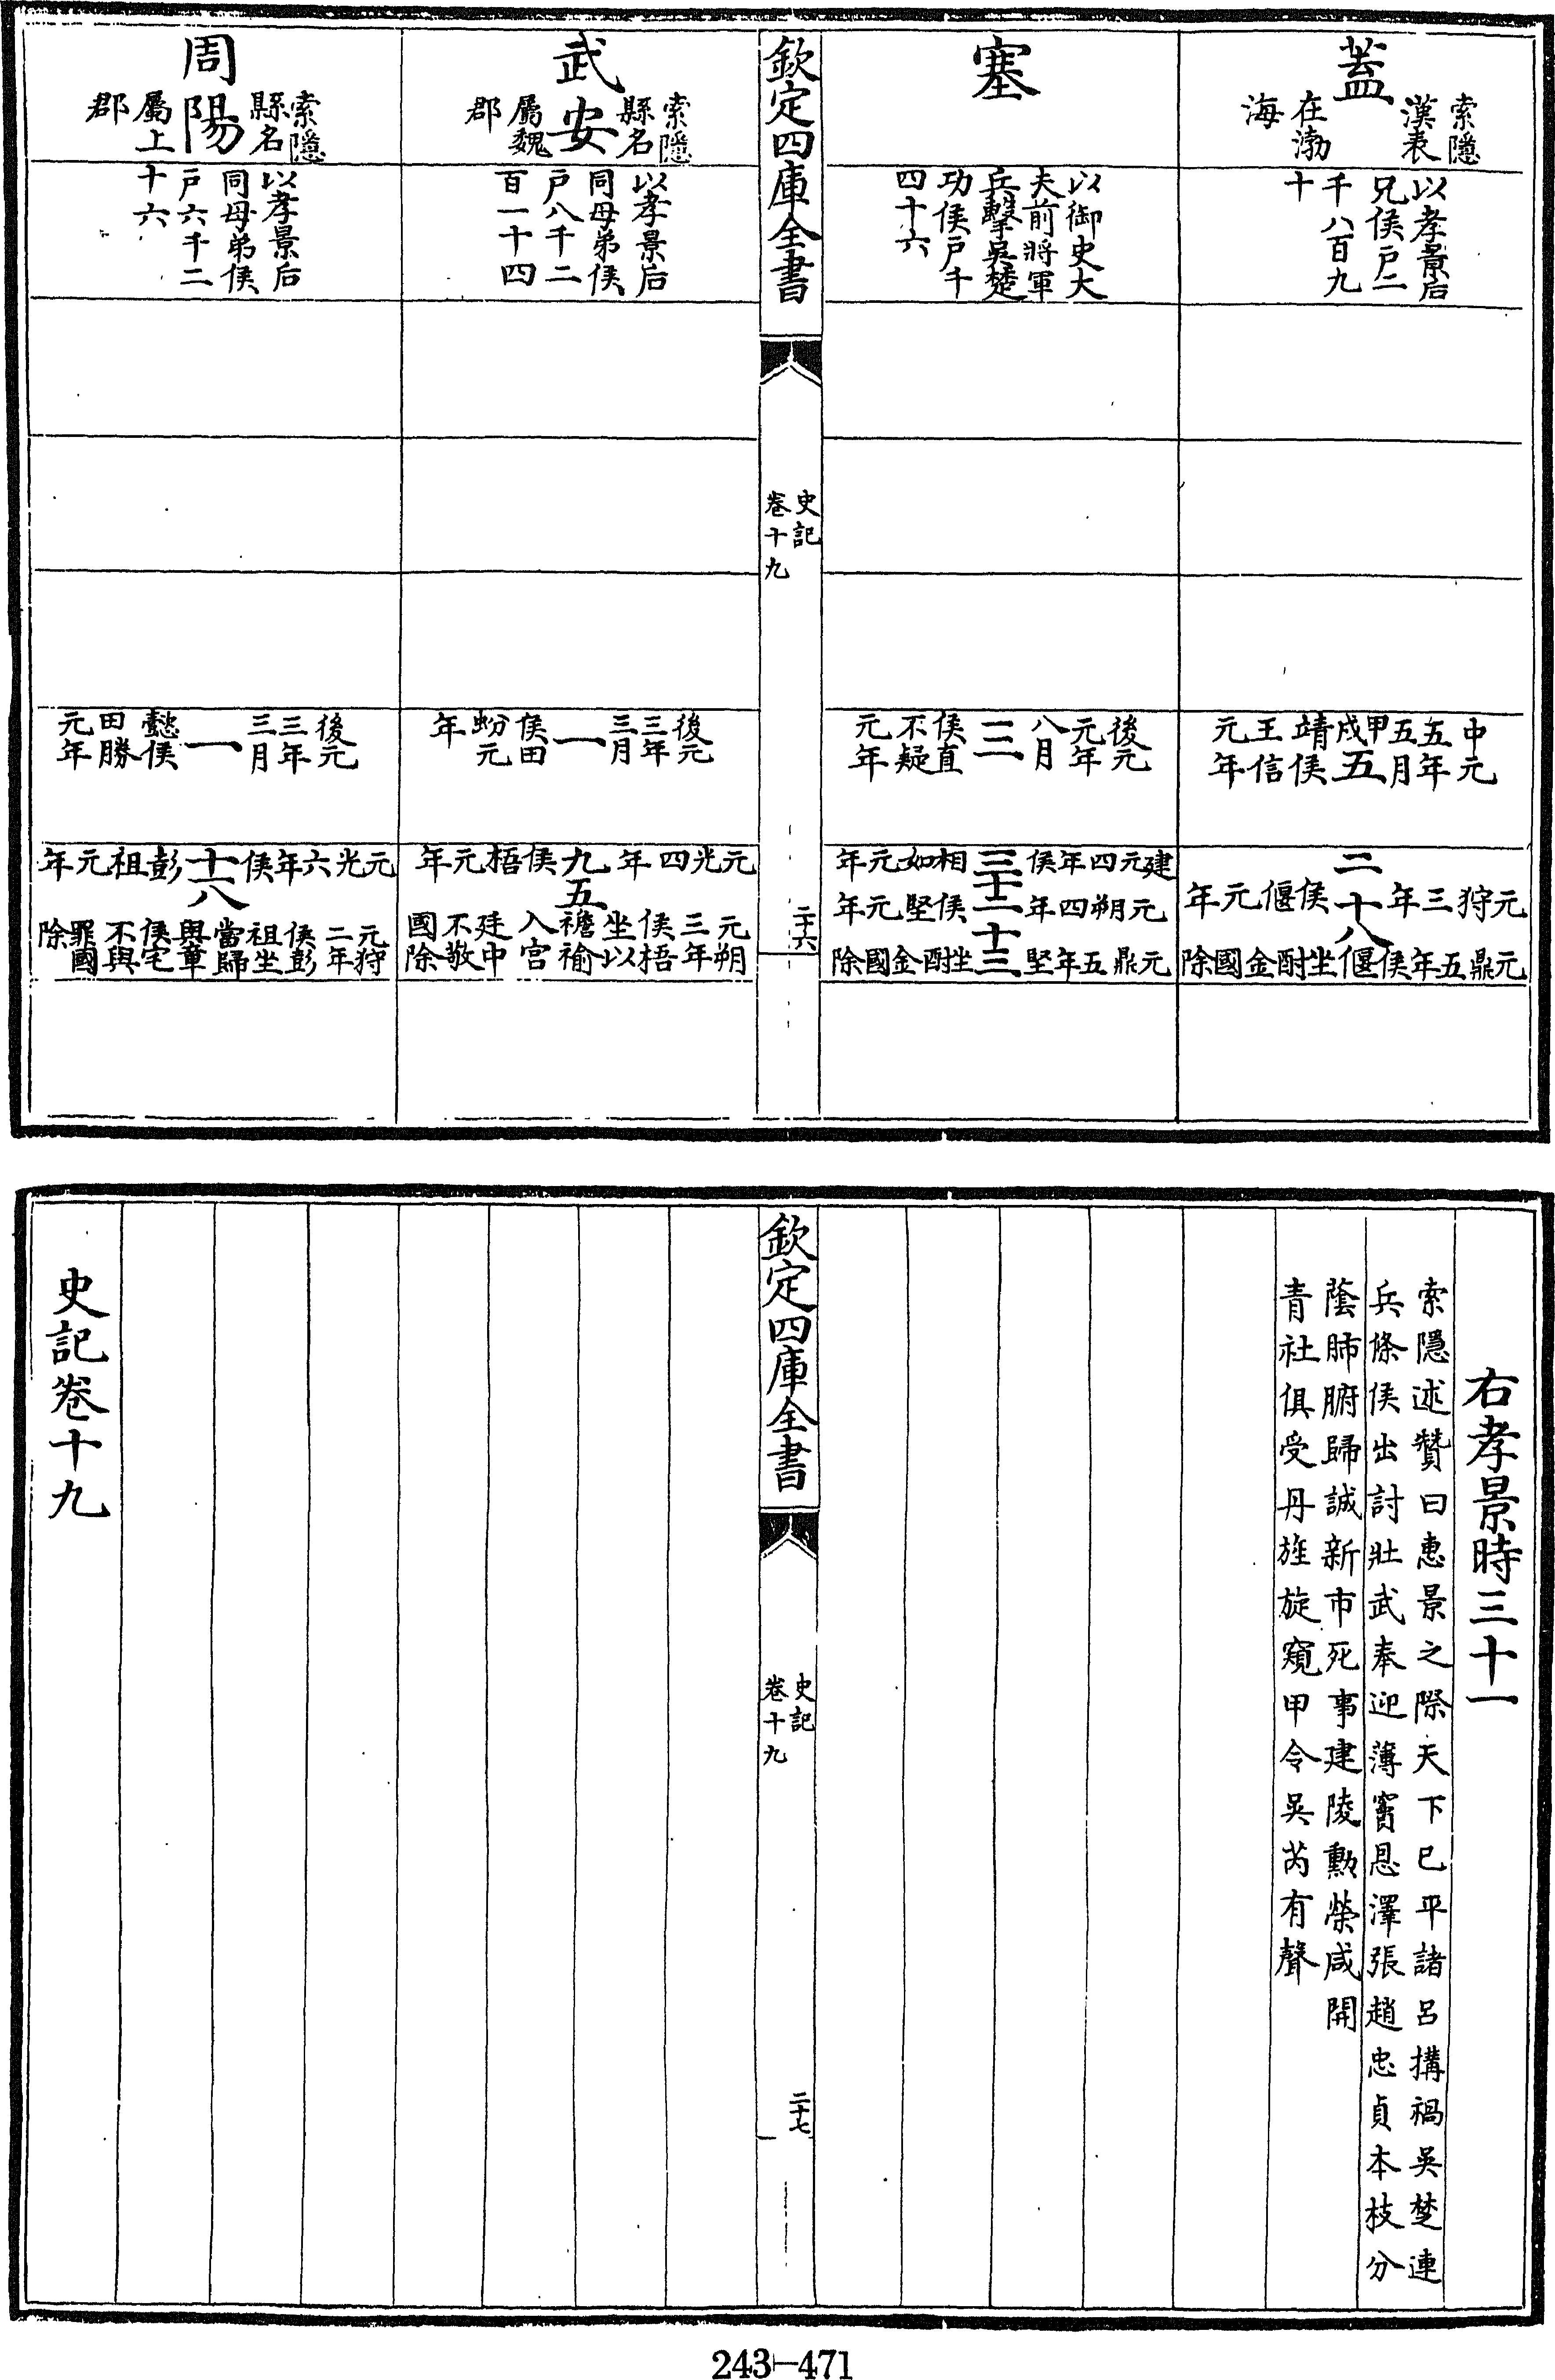 蓋
索隱
漢表
在渤
海
以孝景后
兄侯戶二
千八百九
十
中元
五年
五月
甲戌
五
靖侯
王信
元年
二
元狩三年侯偃元年
十八
元鼎五年侯偃坐酎金國除
塞
以御史大
夫前將軍
兵擊吳楚
功侯戶千
四十六
後元
元年
八月
三
侯直
不疑
元年
建元四年侯相如元年
三
十二
元朔四年侯堅元年
十三
元鼎五年堅坐酎金國除
欽定四庫全書
史記
卷十九
二十六
武安
索隱
縣名
屬魏
郡
以孝景后
同母弟侯
戶八千二
百一十四
後元
三年
三月
一
侯田
蚡元
年
元光四年侯梧元年
九
五
元朔
三年
侯梧
坐以
襜褕
入宮
廷中
不敬
國除
周陽
索隱
縣名
屬上
郡
以孝景后
同母弟侯
戶六千二
十六
後元
三年
三月
一
懿侯
田勝
元年
元光六年侯彭祖元年
十一
八
元狩
二年
侯彭
祖坐
當歸
與章
侯宅
不與
罪國
除
右孝景時三十一
索隱述贊曰惠景之際天下已平諸呂搆禍吳楚連
兵條侯出討壯武奉迎薄竇恩澤張趙忠貞本枝分
蔭肺腑歸誠新市死事建陵勳榮咸開
青社俱受丹旌旋窺甲令吳芮有聲
欽定四庫全書
史記
卷十九
二十七
史記卷十九
243-471